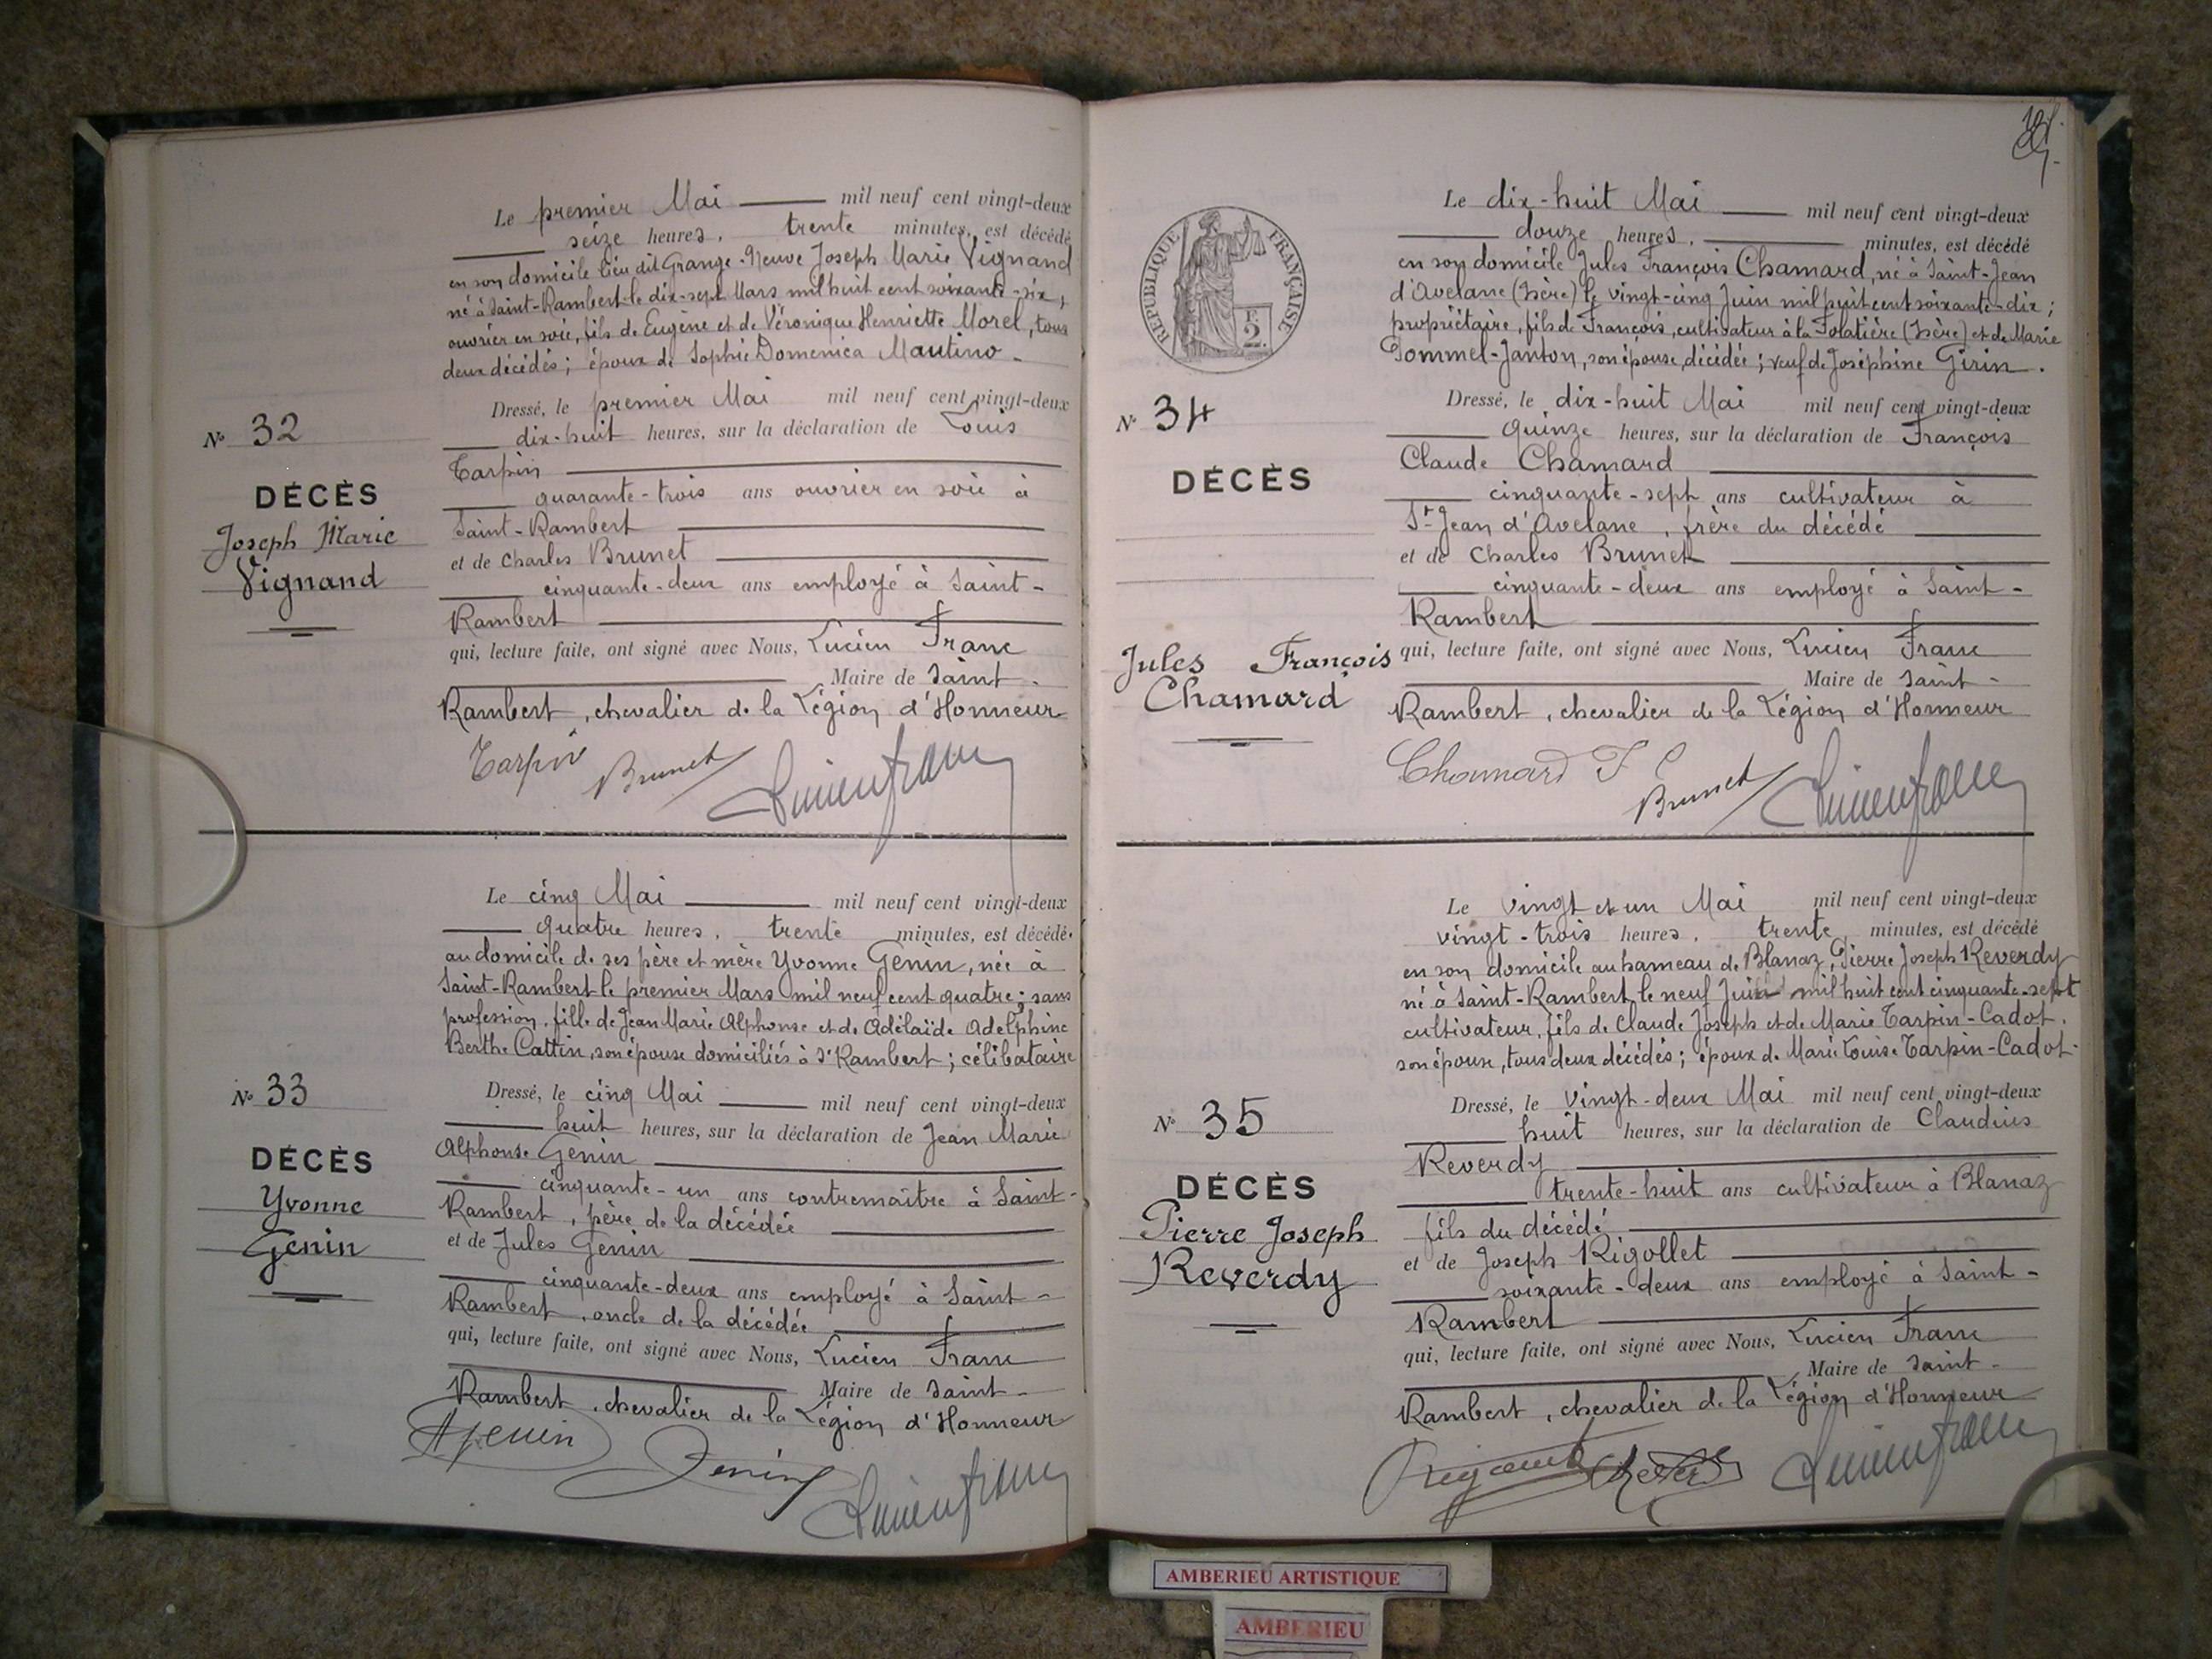 Le premier Mai mil neuf cent vingt-deux
seize heures, trente minutes, est décédé
en son domicile lieu dit Grange-Neuve Joseph Marie Vignand
né à Saint-Rambert le dix-sept Mars mil huit cent soixante-six,
ouvrier en soie, fils de Eugène et de Véronique Henriette Morel, tous
deux décédés; époux de Sophie Domenica Mautino.
Dressé, le premier Mai mil neuf cent vingt-deux
dix-huit heures, sur la déclaration de Louis
Tarpin
quarante-trois ans ouvrier en soie à
Saint-Rambert
et de Charles Brunet
cinquante-deux ans employé à Saint-
Rambert
qui, lecture faite, ont signé avec Nous, Lucien Franc
Maire de Saint-
Rambert, chevalier de la Légion d'Honneur
Tarpin Brunet Lucien Franc
N° 32
DÉCÈS
Joseph Marie
Vignand
Le cinq Mai mil neuf cent vingt-deux
quatre heures, trente minutes, est décédé
au domicile de ses père et mère Yvonne Genin, née à
Saint-Rambert le premier Mars mil neuf cent quatre; sans
profession, fille de Jean Marie Alphonse et de Adélaïde Adelphine
Berthe Cattin, son épouse domiciliés à St Rambert; célibataire
Dressé, le cinq Mai mil neuf cent vingt-deux
huit heures, sur la déclaration de Jean Marie
Alphonse Genin
cinquante-un ans contremaître à Saint-
Rambert, père de la décédée
et de Jules Genin
cinquante-deux ans employé à Saint-
Rambert, oncle de la décédée
qui, lecture faite, ont signé avec Nous, Lucien Franc
Maire de Saint-
Rambert, chevalier de la Légion d'Honneur
AGenin Genin Lucien Franc
N° 33
DÉCÈS
Yvonne
Genin
RÉPUBLIQUE FRANÇAISE
F.
2.
Le dix-huit Mai mil neuf cent vingt-deux
douze heures, minutes, est décédé
en son domicile Jules François Chamard, né à Saint-Jean
d'Avelane (Isère) le vingt-cinq Juin mil huit cent soixante-dix;
propriétaire, fils de François, cultivateur à la Folatière (Isère) et de Marie
Pommel-Janton, son épouse, décédée; veuf de Joséphine Girin.
Dressé, le dix-huit Mai mil neuf cent vingt-deux
quinze heures, sur la déclaration de François
Claude Chamard
cinquante-sept ans cultivateur à
St-Jean d'Avelane, frère du décédé
et de Charles Brunet
cinquante-deux ans employé à Saint-
Rambert
qui, lecture faite, ont signé avec Nous, Lucien Franc
Maire de Saint-
Rambert, chevalier de la Légion d'Honneur
Chamard F C Brunet Lucien Franc
N° 34
DÉCÈS
Jules François
Chamard
Le vingt et un Mai mil neuf cent vingt-deux
vingt-trois heures, trente minutes, est décédé
en son domicile au hameau de Blanaz, Pierre Joseph Reverdy
né à Saint-Rambert le neuf mil huit cent cinquante-sept
cultivateur, fils de Claude Joseph et de Marie Tarpin-Cadot,
son épouse, tous deux décédés; époux de Marie Louise Tarpin-Cadot.
Dressé, le vingt-deux Mai mil neuf cent vingt-deux
huit heures, sur la déclaration de Claudius
Reverdy
trente-huit ans cultivateur à Blanaz
fils du décédé
et de Joseph Rigollet
soixante-deux ans employé à Saint-
Rambert
qui, lecture faite, ont signé avec Nous, Lucien Franc
Maire de Saint-
Rambert, chevalier de la Légion d'Honneur
Lucien Franc
N° 35
DÉCÈS
Pierre Joseph
Reverdy
AMBERIEU ARTISTIQUE
AMBERIEU